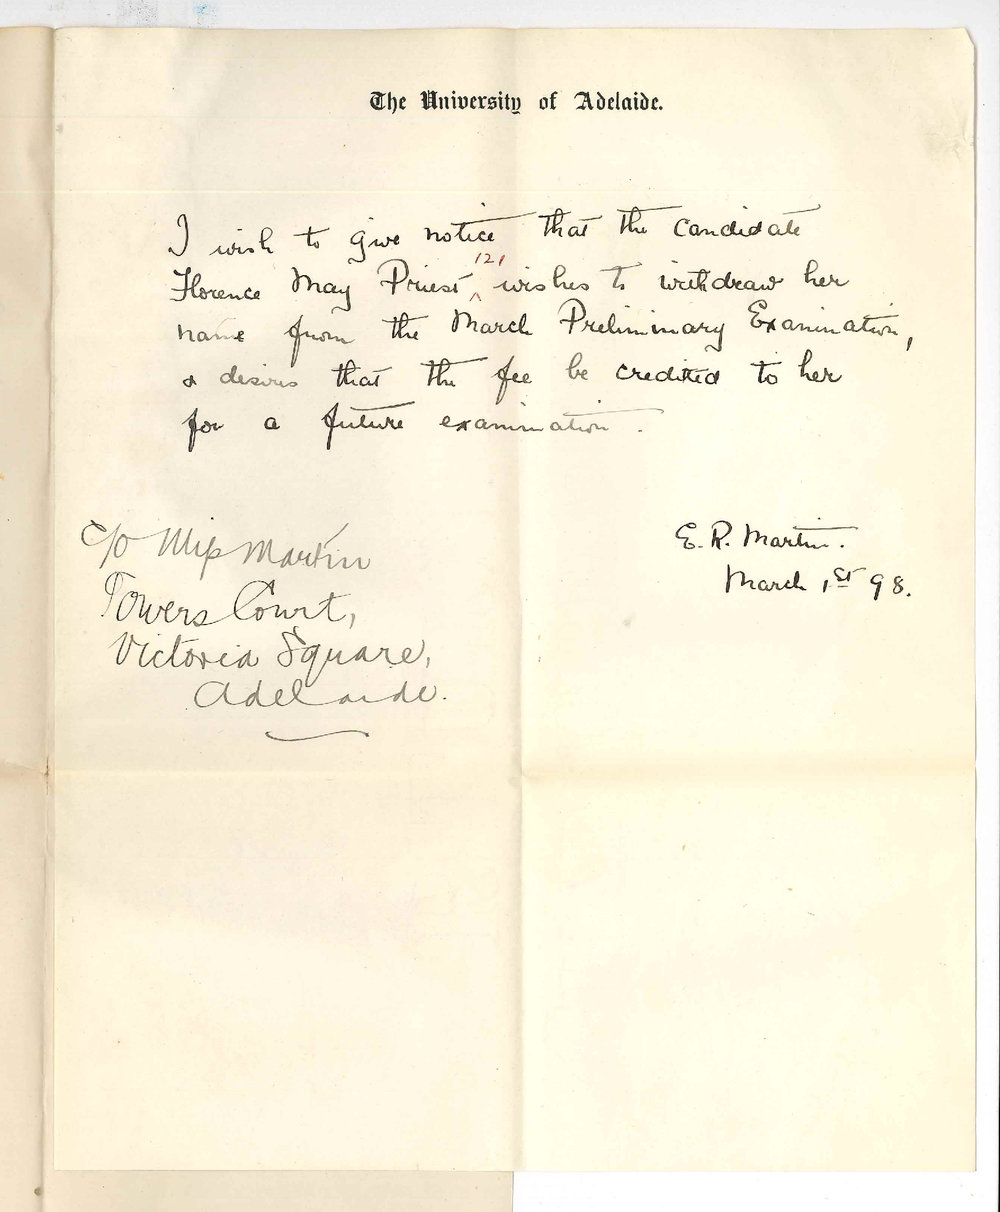 The University of Adelaide.
I wish to give notice that the candidate
121
Florence May Priest ^ wishes to withdraw her
name from the March Preliminary Examination,
& desires that the fee be credited to her
for a future examination.
E. R. Martin.
March 1st 98.
c/o Miss Martin
Towers Court,
Victoria Square,
Adelaide.